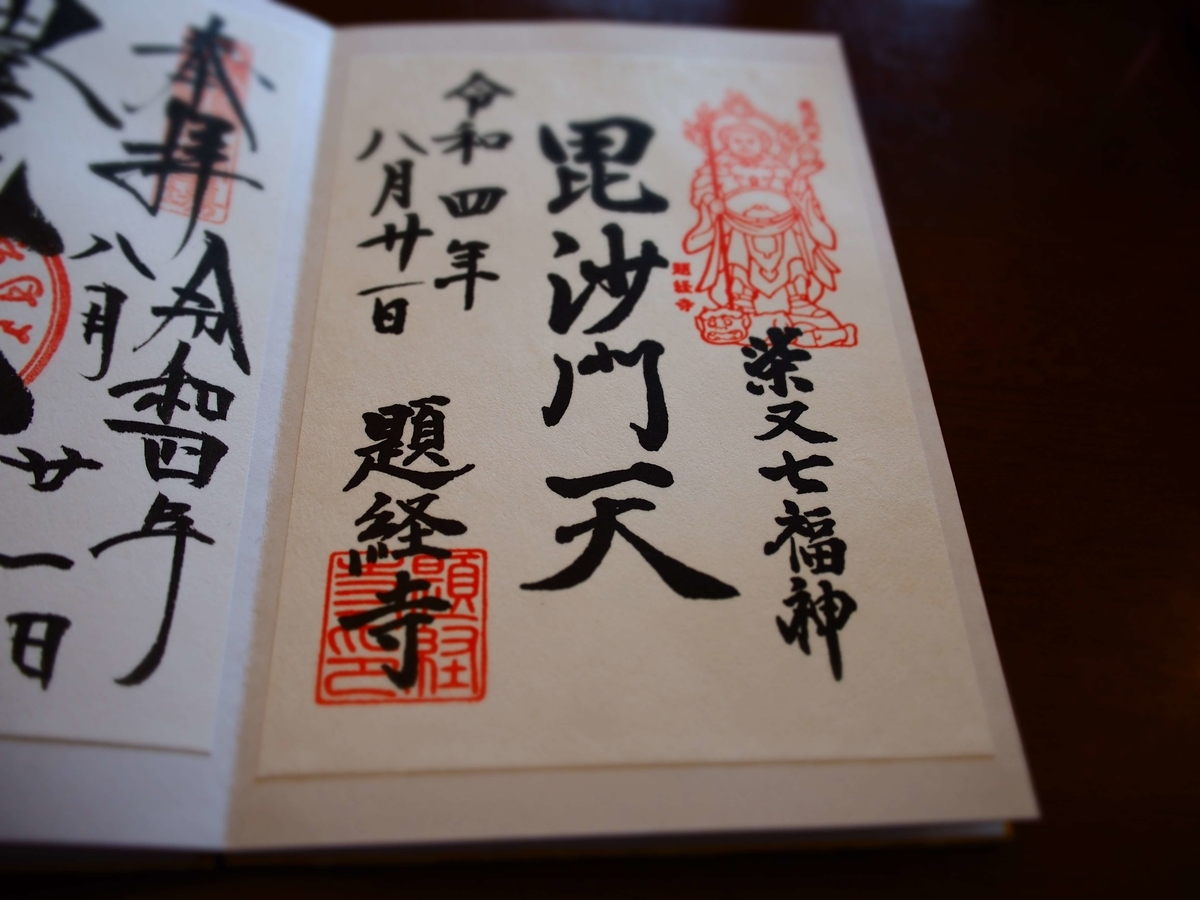 柴又七福神
毘沙門天
令和四年
八月廿一日
題経寺
題経寺
奉拝
令和四年
八月廿一日